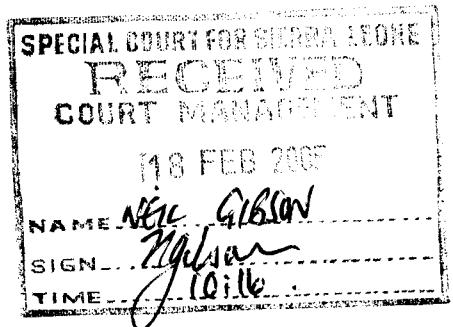 SPECIAL COURT FOR SIERRA LEONE
RECEIVED
COURT MANAGEMENT
18 FEB
NAME NEIL GIBSON
SIGN NGibson
TIME 10:16